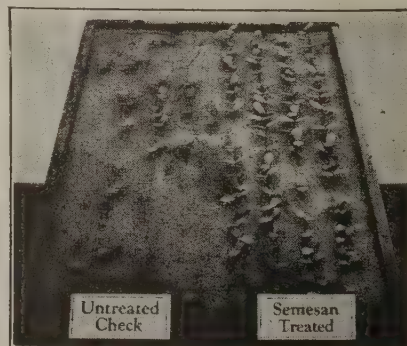 Untreated
Check
Semesan
Treated